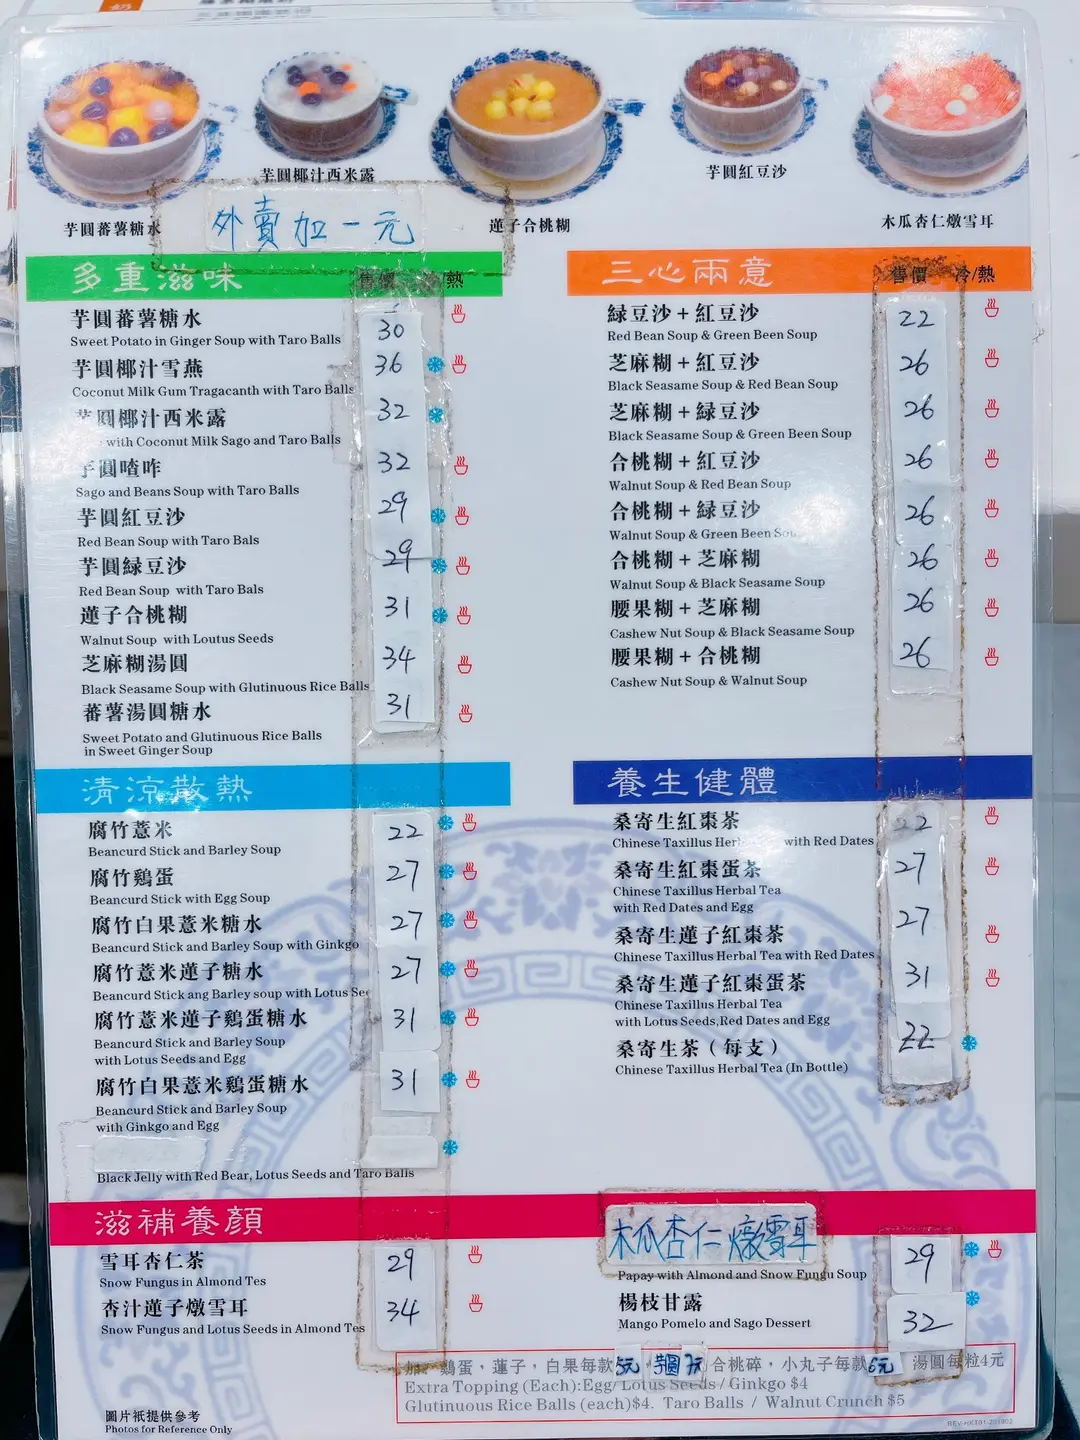 芋圓椰汁西米露
芋圓紅豆沙
芋圓蕃薯糖水
蓮子合桃糊
木瓜杏仁燉雪耳
外賣加一元
多重滋味 售價 /熱
芋圓蕃薯糖水 30
Sweet Potato in Ginger Soup with Taro Balls
芋圓椰汁雪燕 36
Coconut Milk Gum Tragacanth with Taro Balls
芋圓椰汁西米露 32
with Coconut Milk Sago and Taro Balls
芋圓喳咋 32
Sago and Beans Soup with Taro Balls
芋圓紅豆沙 29
Red Bean Soup with Taro Bals
芋圓緑豆沙 29
Red Bean Soup with Taro Bals
蓮子合桃糊 31
Walnut Soup with Loutus Seeds
芝麻糊湯圓 34
Black Seasame Soup with Glutinuous Rice Balls
蕃薯湯圓糖水 31
Sweet Potato and Glutinuous Rice Balls
in Sweet Ginger Soup
三心兩意 售價 冷/熱
緑豆沙+紅豆沙 22
Red Bean Soup & Green Been Soup
芝麻糊+紅豆沙 26
Black Seasame Soup & Red Bean Soup
芝麻糊+緑豆沙 26
Black Seasame Soup & Green Been Soup
合桃糊+紅豆沙 26
Walnut Soup & Red Bean Soup
合桃糊+緑豆沙 26
Walnut Soup & Green Been Sou
合桃糊+芝麻糊 26
Walnut Soup & Black Seasame Soup
腰果糊+芝麻糊 26
Cashew Nut Soup & Black Seasame Soup
腰果糊+合桃糊 26
Cashew Nut Soup & Walnut Soup
清涼散熱
腐竹薏米 22
Beancurd Stick and Barley Soup
腐竹鷄蛋 27
Beancurd Stick with Egg Soup
腐竹白果薏米糖水 27
Beancurd Stick and Barley Soup with Ginkgo
腐竹薏米蓮子糖水 27
Beancurd Stick ang Barley soup with Lotus See
腐竹薏米蓮子鷄蛋糖水 31
Beancurd Stick and Barley Soup
with Lotus Seeds and Egg
腐竹白果薏米鷄蛋糖水 31
Beancurd Stick and Barley Soup
with Ginkgo and Egg
Black Jelly with Red Bear, Lotus Seeds and Taro Balls
養生健體
桑寄生紅棗茶 22
Chinese Taxillus Her with Red Dates
桑寄生紅棗蛋茶 27
Chinese Taxillus Herbal Tea
with Red Dates and Egg
桑寄生蓮子紅棗茶 27
Chinese Taxillus Herbal Tea with Red Dates
桑寄生蓮子紅棗蛋茶 31
Chinese Taxillus Herbal Tea
with Lotus Seeds,Red Dates and Egg
桑寄生茶（每支） 22
Chinese Taxillus Herbal Tea (In Bottle)
滋補養顏
雪耳杏仁茶 29
Snow Fungus in Almond Tes
杏汁蓮子燉雪耳 34
Snow Fungus and Lotus Seeds in Almond Tes
木瓜杏仁燉雪耳 29
Papay with Almond and Snow Fungu Soup
楊枝甘露 32
Mango Pomelo and Sago Dessert
鷄蛋，蓮子，白果每款5元 芋圓7元 合桃碎，小丸子每款6元 湯圓每粒4元
Extra Topping (Each):Egg/ Lotus Seeds / Ginkgo $4
Glutinuous Rice Balls (each)$4. Taro Balls / Walnut Crunch $5
圖片衹提供參考
Photos for Reference Only